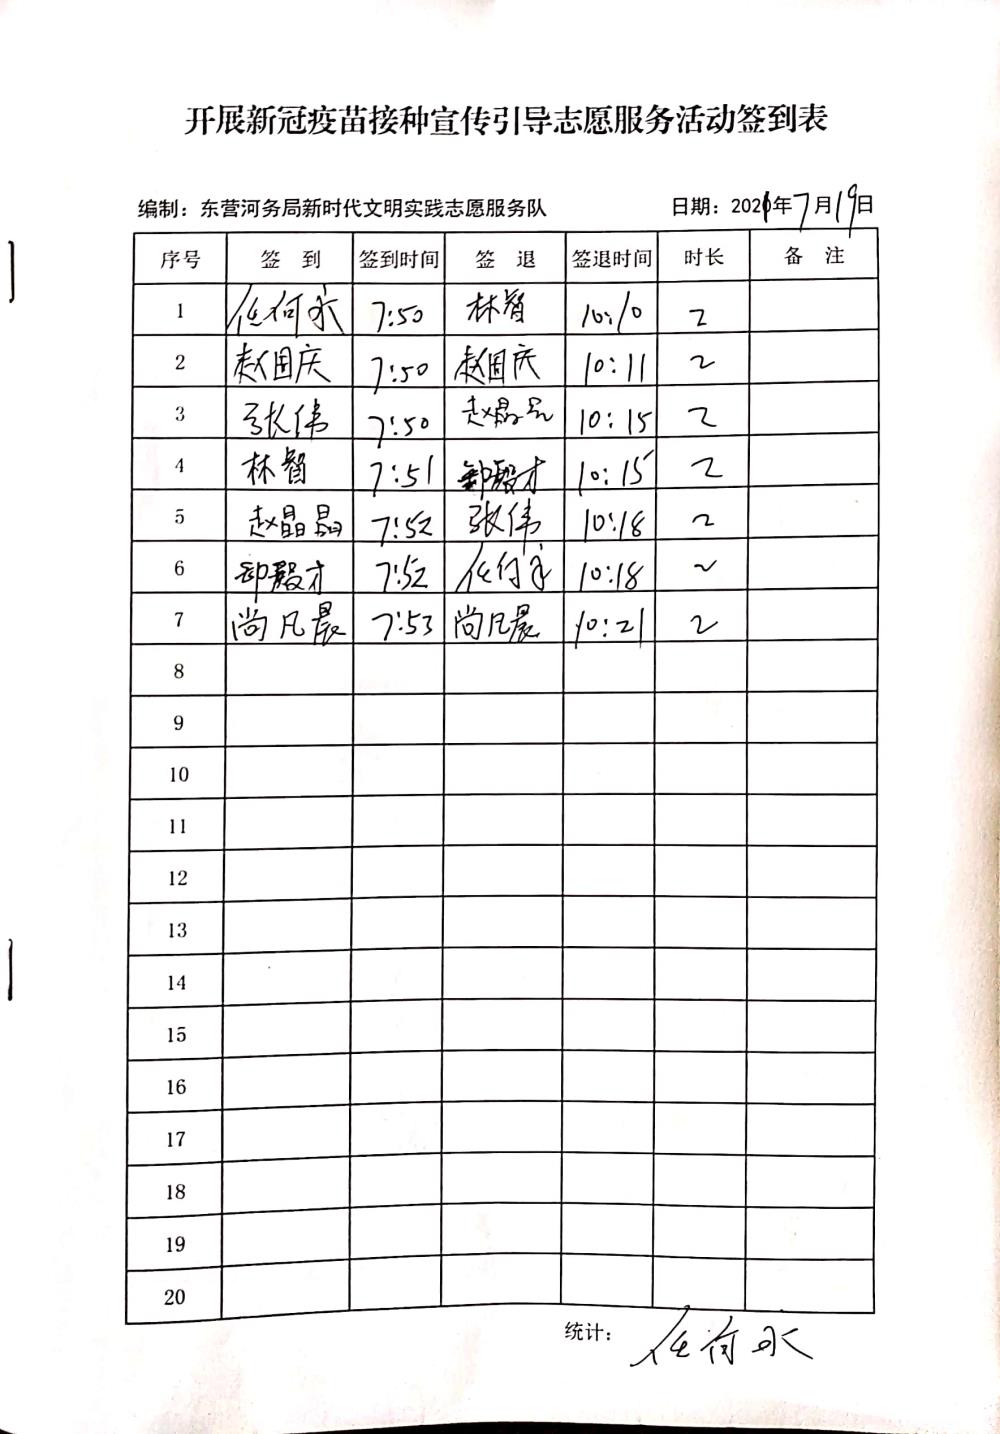 开展新冠疫苗接种宣传引导志愿服务活动签到表
编制：东营河务局新时代文明实践志愿服务队 日期：2021年7月19日
序号 签到 签到时间 签退 签退时间 时长 备注
1 任何永 7:50 林智 10:10 2
2 赵国庆 7:50 赵国庆 10:11 2
3 张伟 7:50 赵晶晶 10:15 2
4 林智 7:51 10:15 2
5 赵晶晶 7:52 张伟 10:18 2
6 7:52 任何永 10:18 2
7 尚凡晨 7:53 尚凡晨 10:21 2
8
9
10
11
12
13
14
15
16
17
18
19
20
统计：任何永